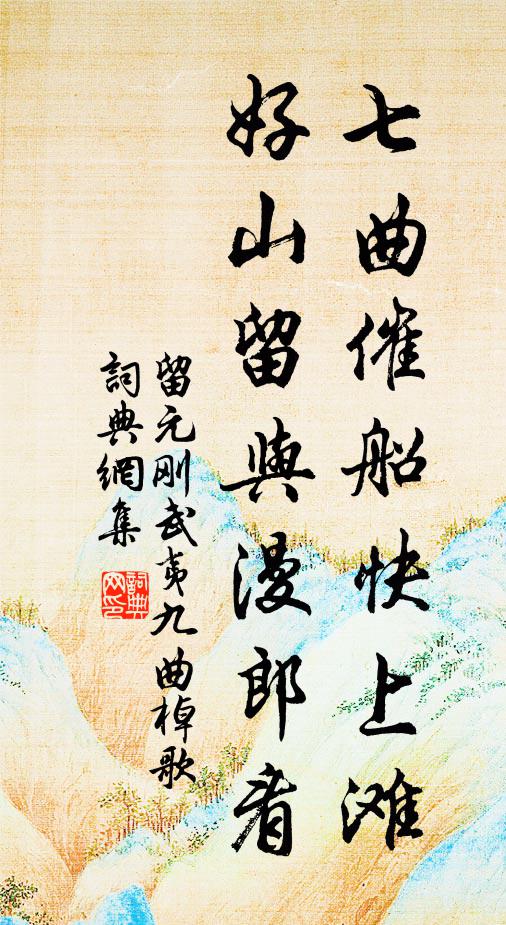 七曲催船快上滩
好山留與漫郎看
留元刚武夷九曲棹歌
詞典網集
詞典网印